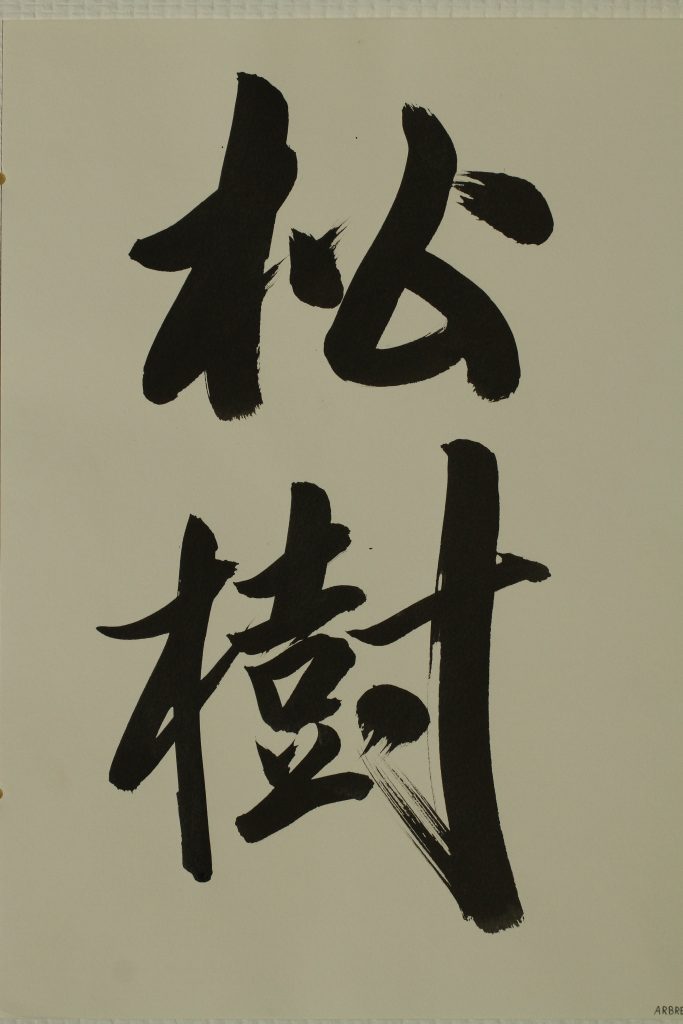 松樹
ARBRE